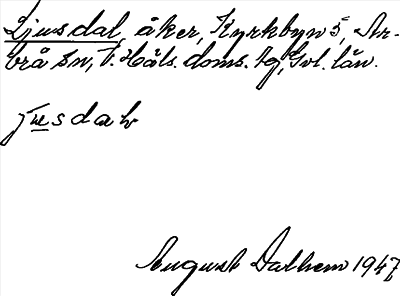 Ljusdal, åker, Kyrkbyn 5, Ar-
brå sn, V. Häls. doms. tg, Gvl. län.
jusdal
August Dalhem 1947